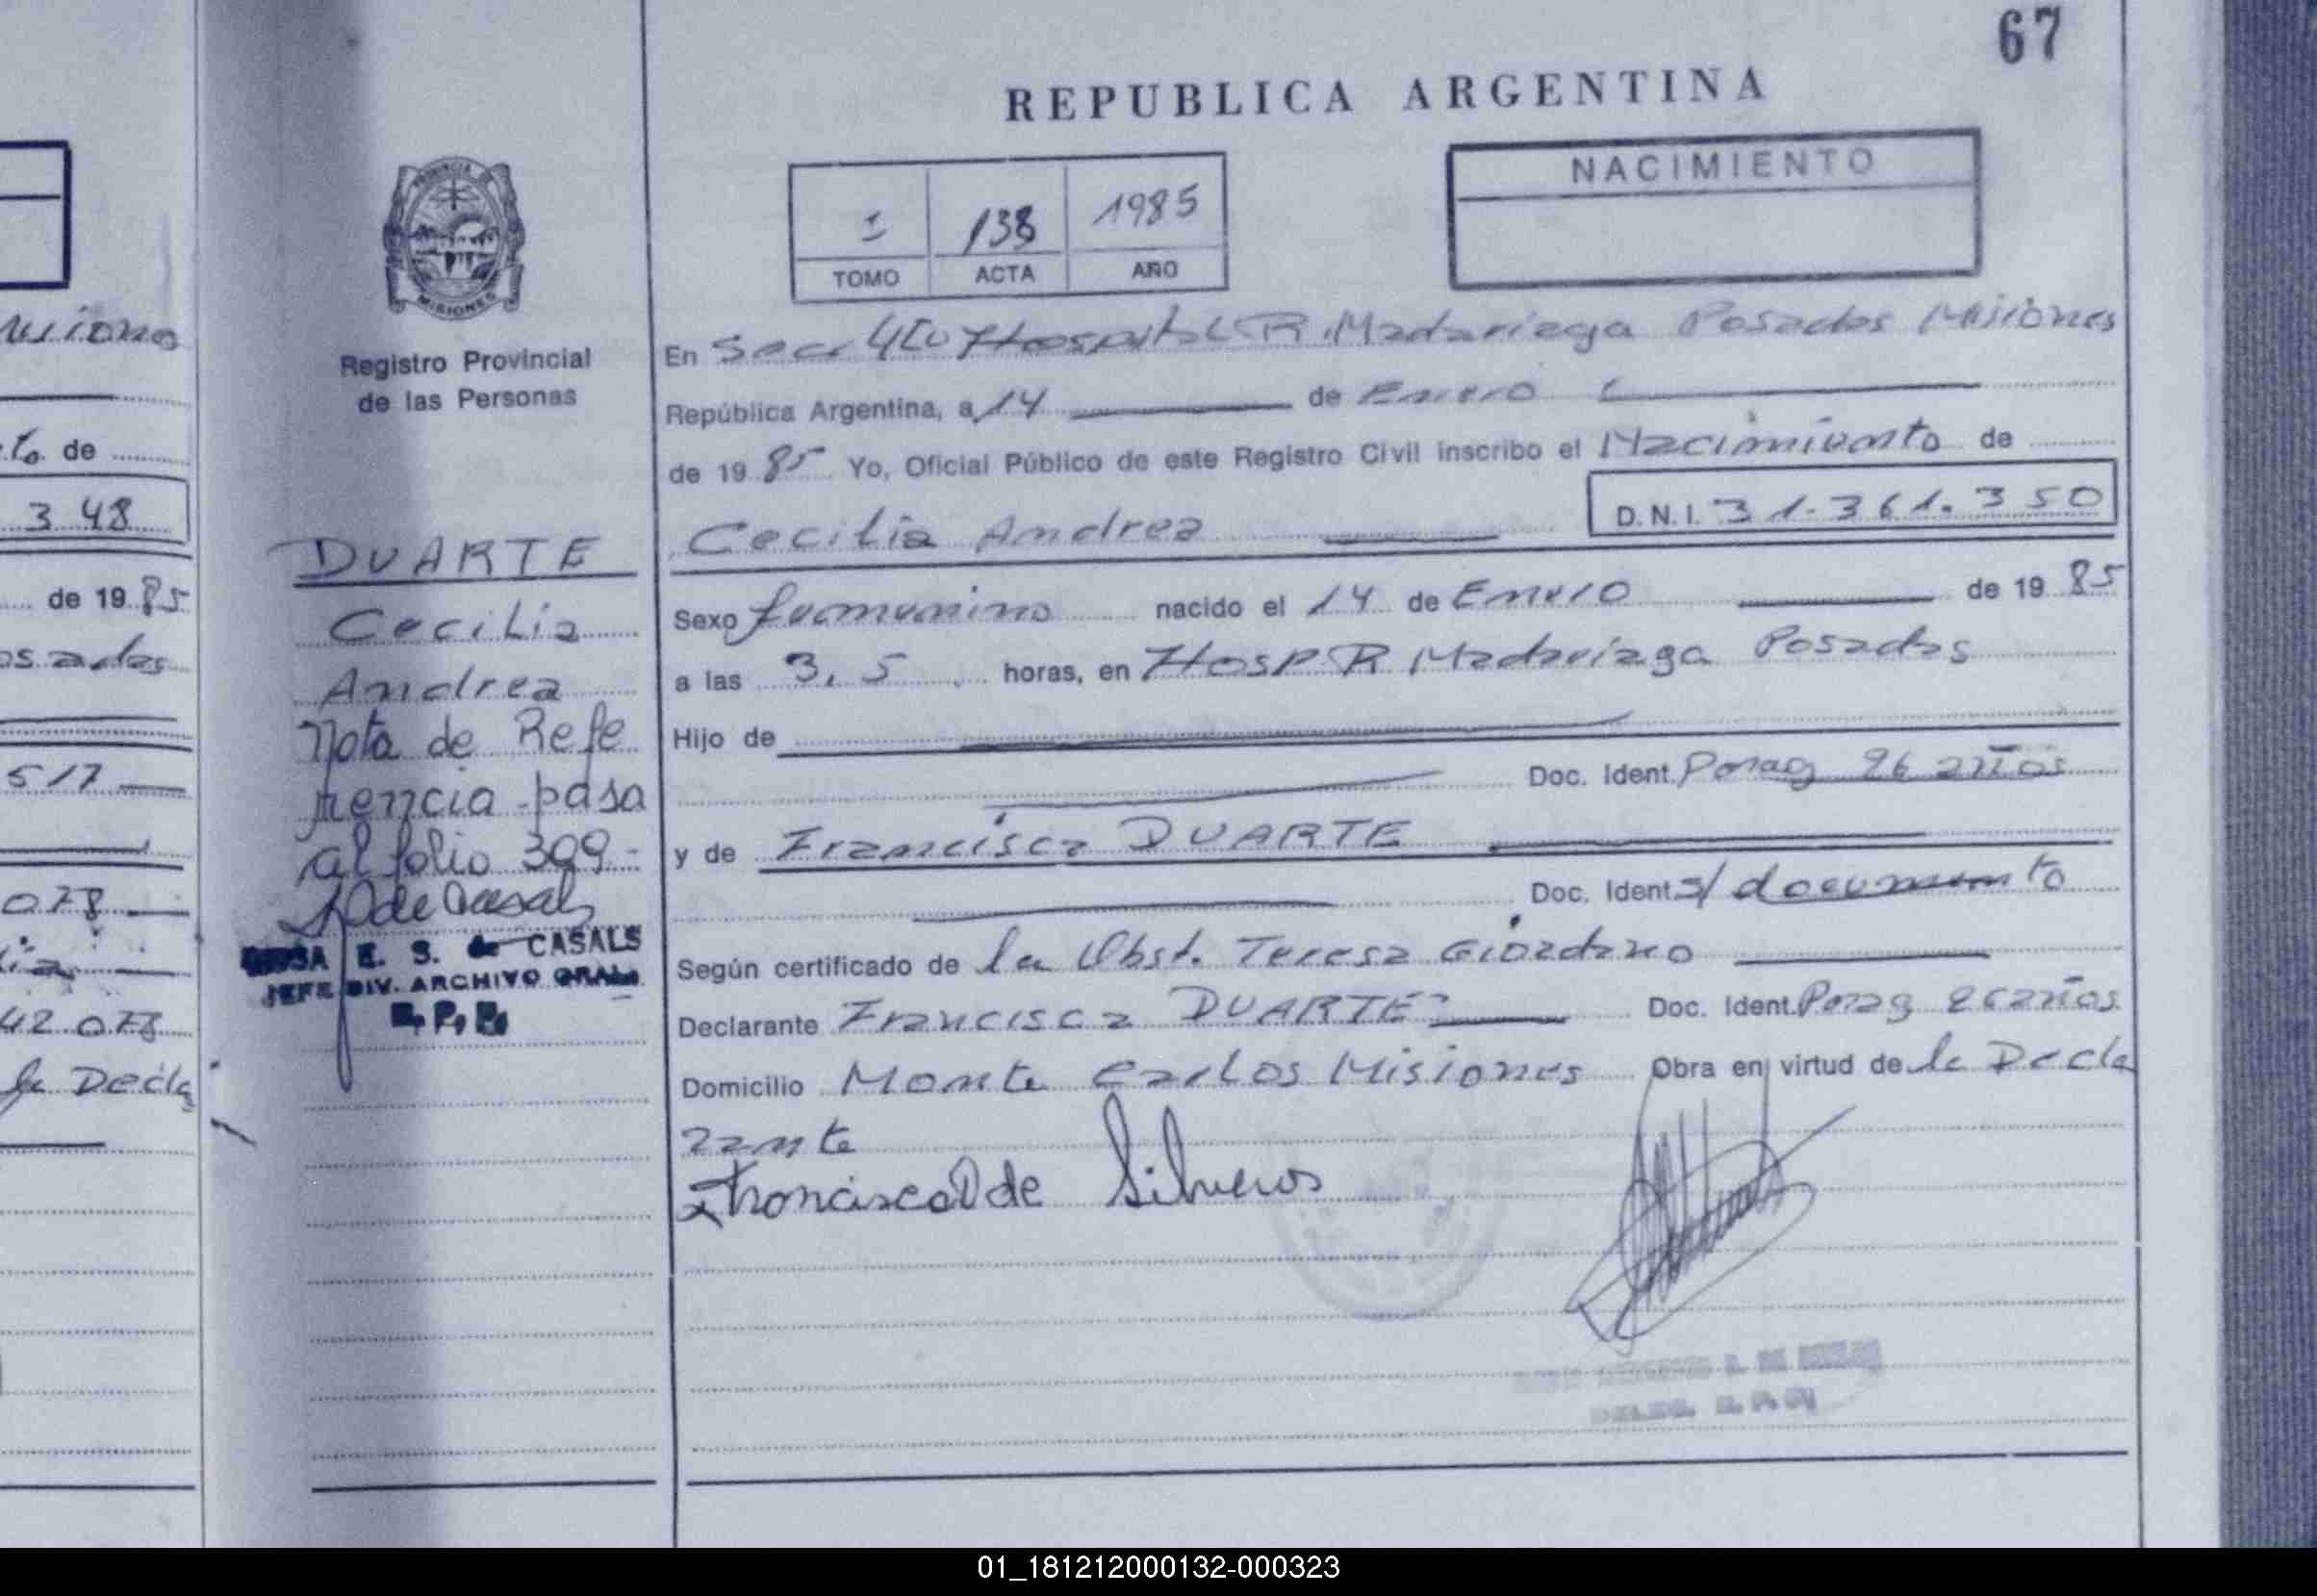 67
REPUBLICA ARGENTINA
I 138 1985
TOMO ACTA AÑO
NACIMIENTO
PROVINCIA DE
MISIONES
Registro Provincial
de las Personas
En Secc Hospital R. Madariaga Posadas Misiones
República Argentina, a 14 de Enero
de 1985 Yo, Oficial Público de este Registro Civil inscribo el Nacimiento de
Cecilia Andrea D.N.I. 31.361.350
Sexo femenino nacido el 14 de Enero de 1985
a las 3,5 horas, en Hosp R Madariaga Posadas
Hijo de
Doc. Ident. Parag 26 años
y de Francisca DUARTE
Doc. Ident. s/ documento
Según certificado de la Obst. Teresa Giordano
Declarante Francisca DUARTE Doc. Ident. Parag 26 años
Domicilio Monte Carlos Misiones Obra en virtud de la Decla
rante
Francisca D de Silveros
DUARTE
Cecilia
Andrea
Nota de Refe
rencia pasa
al folio 399-
de Casals
E. S. de CASALS
JEFE DIV. ARCHIVO GRAL.
R. P. P.
to de
348
de 1985
osadas
517
078
42 078
la Decla
01_181212000132-000323